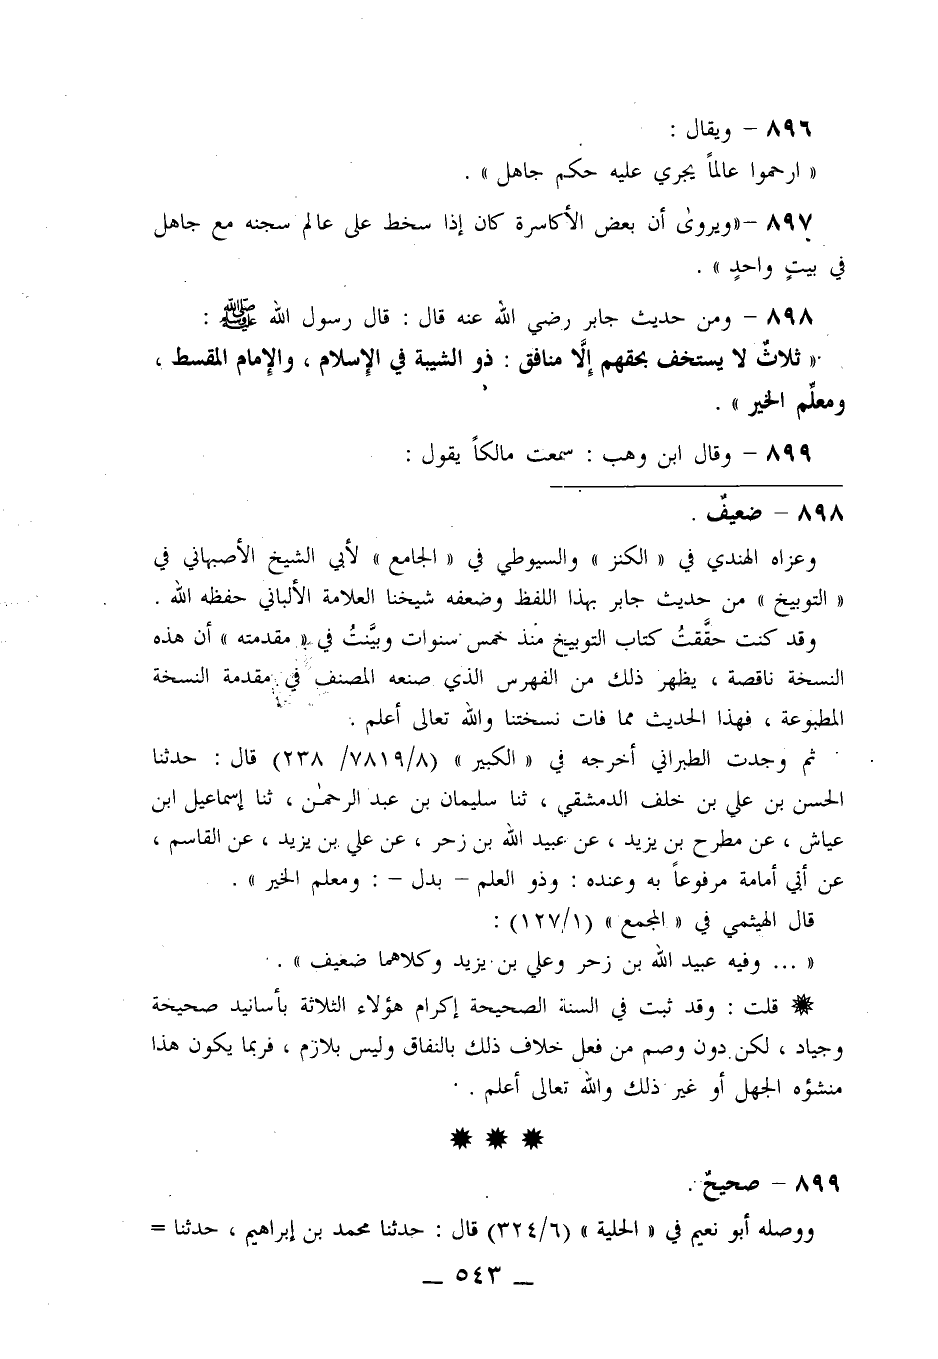 ٨٩٦ - ويقال :
« ارحموا عالماً يجري عليه حكم جاهل » .
٨٩٧ - «ويروىٰ أن بعض الأكاسرة كان إذا سخط على عالم سجنه مع جاهل
في بيتٍ واحدٍ » .
٨٩٨ - ومن حديث جابر رضي الله عنه قال : قال رسول الله ﷺ :
« ثلاثٌ لا يستخف بحقهم إلَّا منافق : ذو الشيبة في الإسلام ، والإمام المقسط ،
ومعلِّم الخير » .
٨٩٩ - وقال ابن وهب : سمعت مالكاً يقول :
٨٩٨ - ضعيفٌ .
وعزاه الهندي في « الكنز » والسيوطي في « الجامع » لأبي الشيخ الأصبهاني في
« التوبيخ » من حديث جابر بهذا اللفظ وضعفه شيخنا العلامة الألباني حفظه الله .
وقد كنت حقَّقتُ كتاب التوبيخ منذ خمس سنوات وبيَّنتُ في « مقدمته » أن هذه
النسخة ناقصة ، يظهر ذلك من الفهرس الذي صنعه المصنف في مقدمة النسخة
المطبوعة ، فهذا الحديث مما فات نسختنا والله تعالى أعلم .
ثم وجدت الطبراني أخرجه في « الكبير » (٧٨١٩/٨/ ٢٣٨) قال : حدثنا
الحسن بن علي بن خلف الدمشقي ، ثنا سليمان بن عبد الرحمٰن ، ثنا إسماعيل ابن
عياش ، عن مطرح بن يزيد ، عن عبيد الله بن زحر ، عن علي بن يزيد ، عن القاسم ،
عن أبي أمامة مرفوعاً به وعنده : وذو العلم - بدل - : ومعلم الخير » .
قال الهيثمي في « المجمع » (١٢٧/١) :
« ... وفيه عبيد الله بن زحر وعلي بن يزيد وكلاهما ضعيف » .
✹ قلت : وقد ثبت في السنة الصحيحة إكرام هؤلاء الثلاثة بأسانيد صحيحة
وجياد ، لكن دون وصم من فعل خلاف ذلك بالنفاق وليس بلازم ، فربما يكون هذا
منشؤه الجهل أو غير ذلك والله تعالى أعلم .
✹ ✹ ✹
٨٩٩ - صحيحٌ .
ووصله أبو نعيم في « الحلية » (٣٢٤/٦) قال : حدثنا محمد بن إبراهيم ، حدثنا =
_ ٥٤٣ _